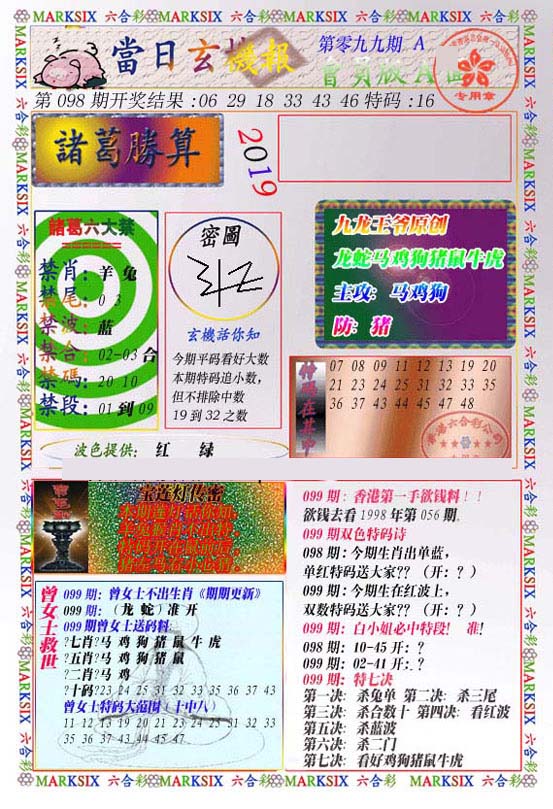 MARKSIX 六合彩 MARKSIX 六合彩 MARKSIX 六合彩 MARKSIX 六合彩
當日玄機報
第零九九期 A
會員版A面
专用章
第 098 期开奖结果 :06 29 18 33 43 46 特码 :16
諸葛勝算
2019
諸葛六大禁
禁肖: 羊 兔
禁尾: 0 3
禁波: 蓝
禁合: 02-03 合
禁碼: 20 10
禁段: 01 到 09
密圖
玄機話你知
今期平码看好大数
本期特码追小数,
但不排除中数
19 到 32 之数
九龙王爷原创
龙蛇马鸡狗猪鼠牛虎
主攻: 马鸡狗
防: 猪
07 08 09 11 12 13 19 20
21 23 24 25 31 32 33 35
36 37 43 44 45 47 48
波色提供: 红 绿
宝莲灯传密
099 期: 曾女士不出生肖《期期更新》
099 期: (龙 蛇) 准 开
099 期曾女士送码料:
?七肖?马 鸡 狗 猪 鼠 牛 虎
?五肖?马 鸡 狗 猪 鼠
?二肖?马 鸡
?十码?23 24 25 31 32 33 35 36 37 43
曾女士特码大范围 (十中八)
11 12 13 19 20 21 23 24 25 31 32 33
35 36 37 43 44 45 47
曾女士救世
099 期: 香港第一手欲钱料!!
欲钱去看 1998 年第 056 期.
099 期双色特码诗
098 期: 今期生肖出单蓝,
单红特码送大家?? (开: ?)
099 期: 今期生在红波上,
双数特码送大家?? (开: ?)
099 期: 白小姐必中特段! 准!
098 期: 10-45 开: ?
099 期: 02-41 开: ?
099 期: 特七决
第一决: 杀兔单 第二决: 杀三尾
第三决: 杀合数十 第四决: 看红波
第五决: 杀蓝波
第六决: 杀二门
第七决: 看好鸡狗猪鼠牛虎
MARKSIX 六合彩 MARKSIX 六合彩 MARKSIX 六合彩 MARKSIX 六合彩